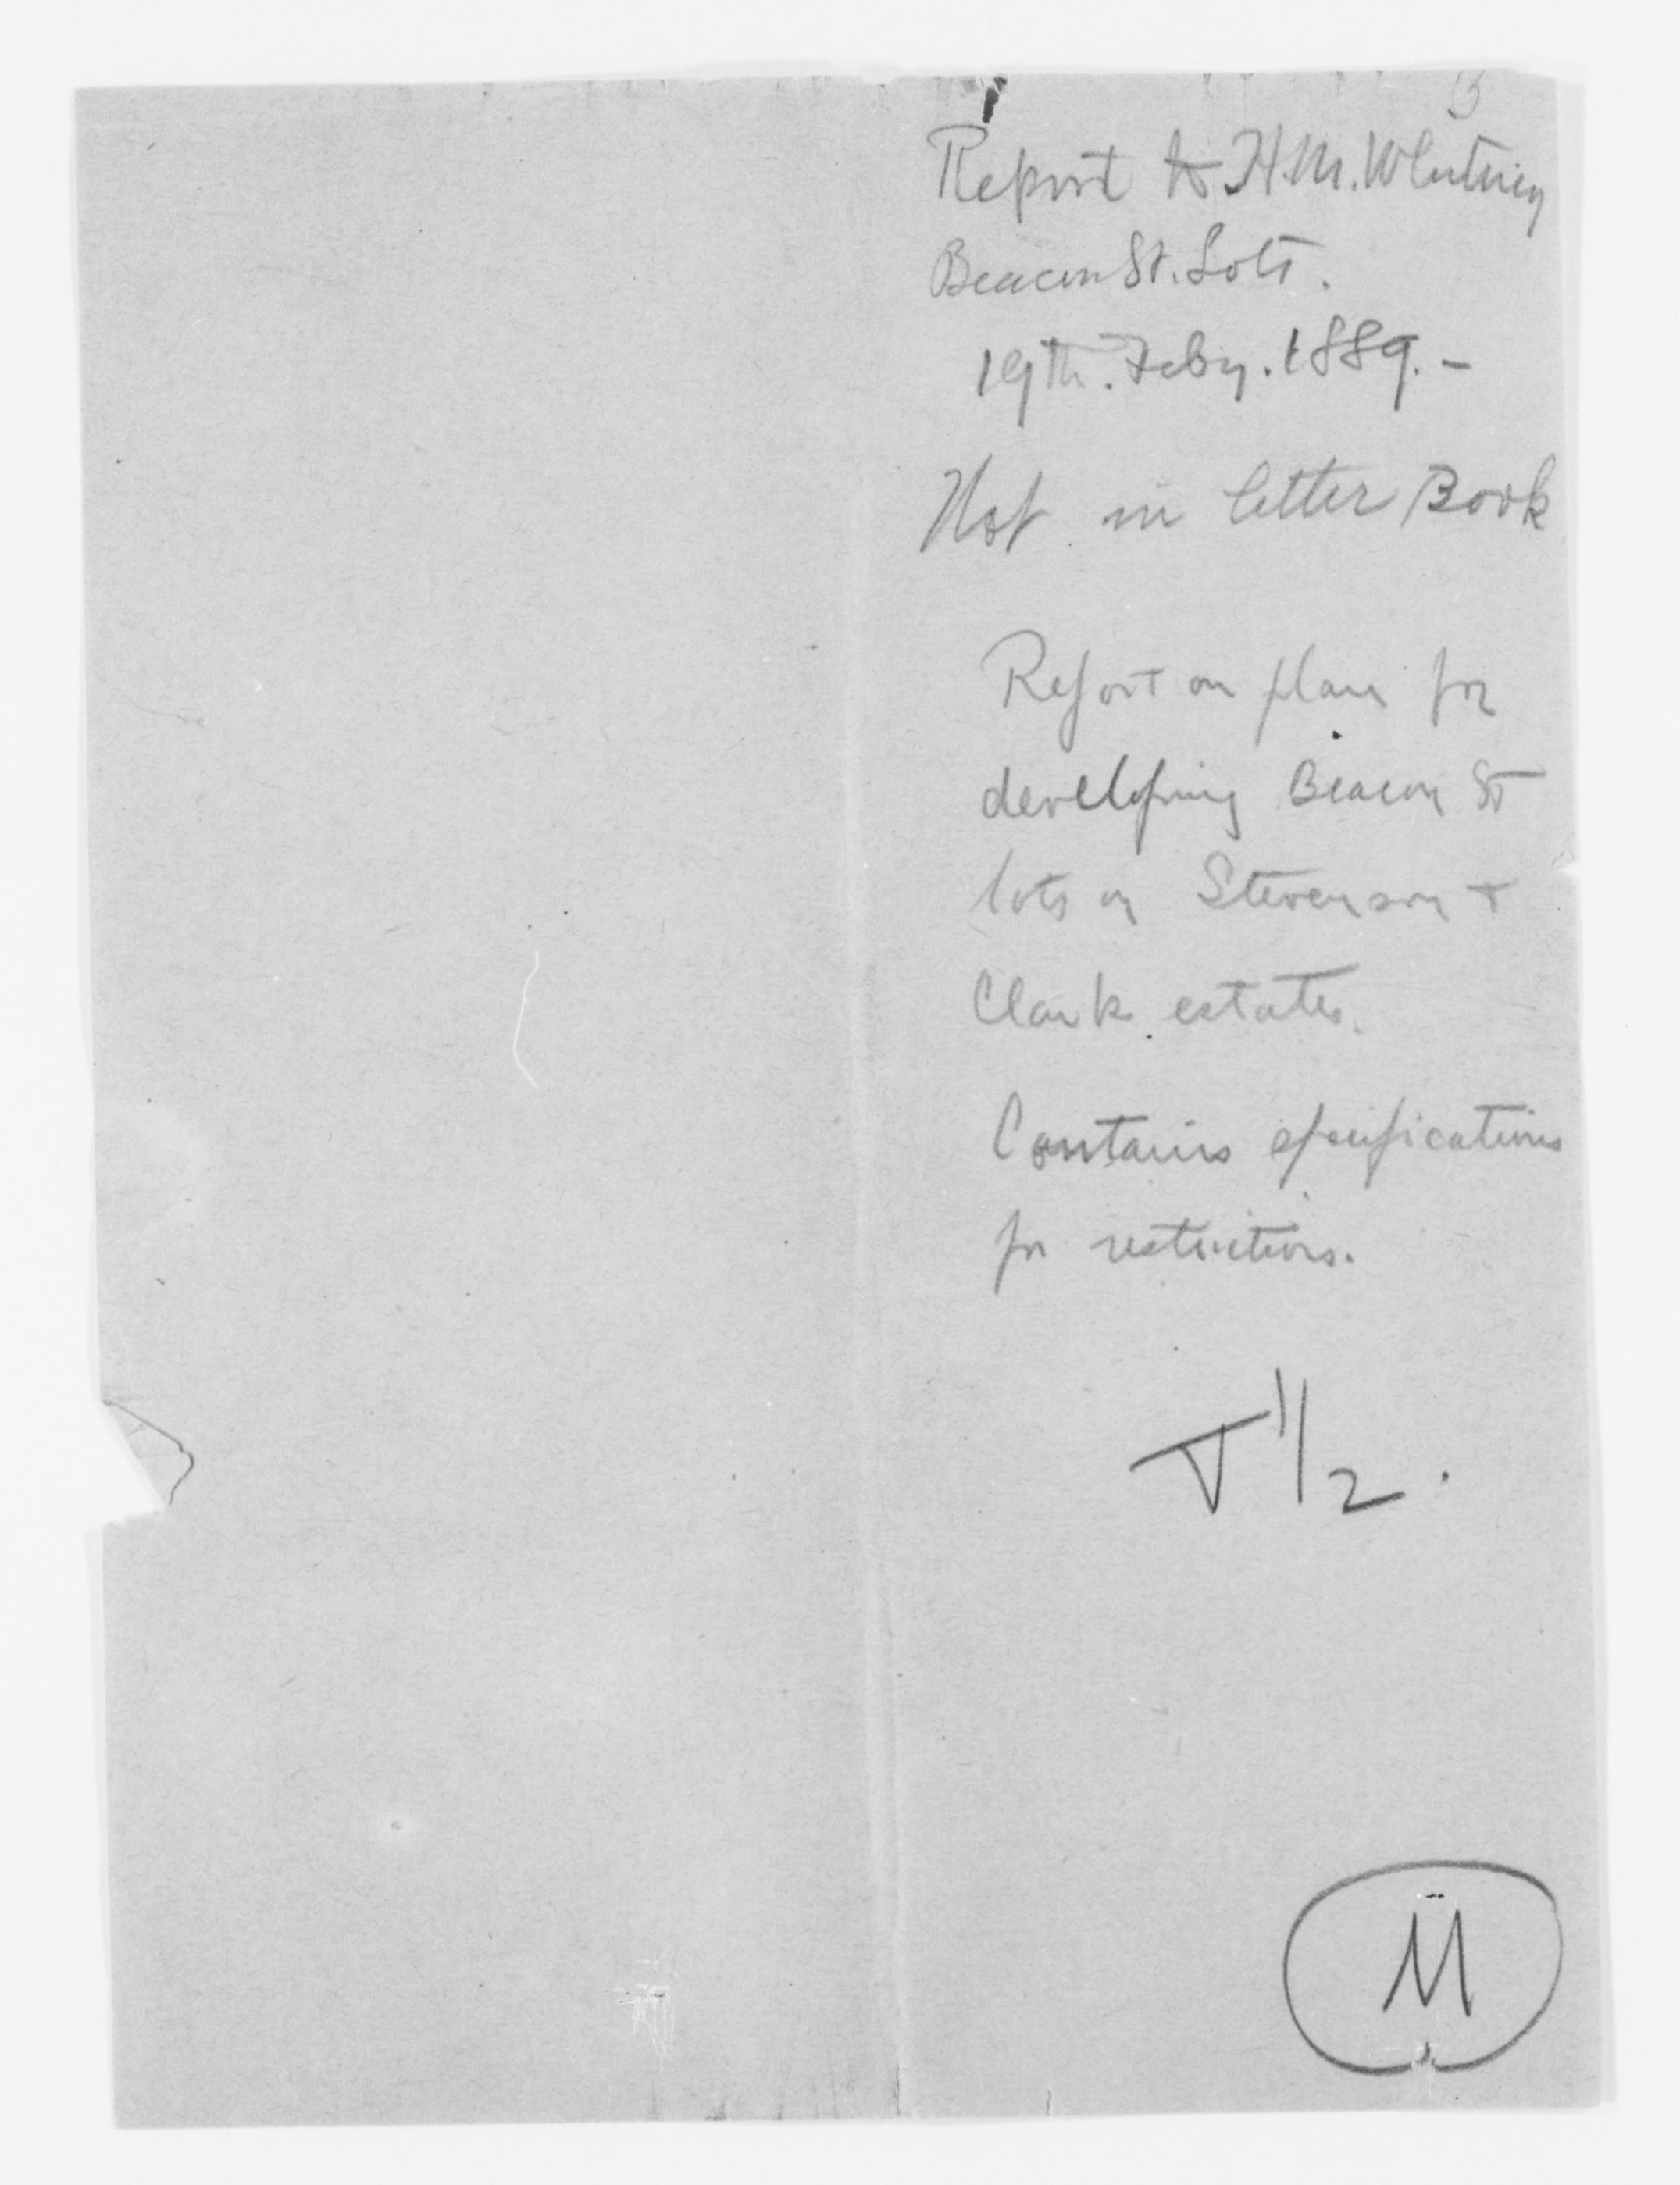 3
Report to H. M. Whitney
Beacon St. Lots.
19th. Feby. 1889. -
Not in letter Book
Report on plan for
developing Beacon St
lots on Stevenson +
Clark estates.
Contains specifications
for restrictions.
J 1/2.
M